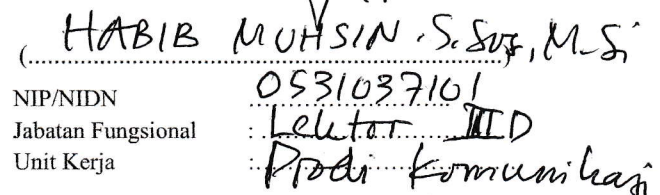 (HABIB MUHSIN . S. Sos, M.Si)
NIP/NIDN 0531037101
Jabatan Fungsional : Lektor III D
Unit Kerja : Prodi Komunikasi